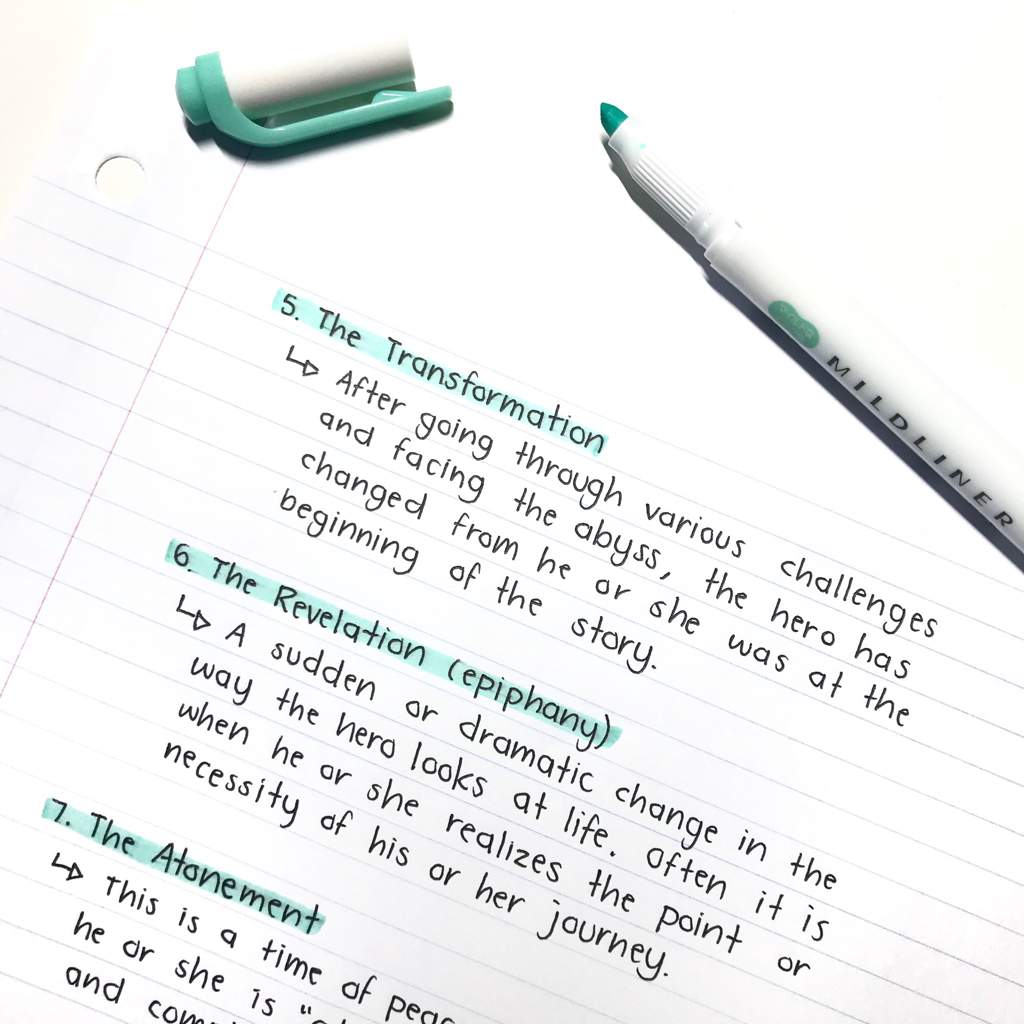 MILDLINER
5. The Transformation
↳ After going through various challenges
and facing the abyss, the hero has
changed from he or she was at the
beginning of the story.
6. The Revelation (epiphany)
↳ A sudden or dramatic change in the
way the hero looks at life. Often it is
when he or she realizes the point or
necessity of his or her journey.
7. The Atonement
↳ This is a time of
he or she is
and